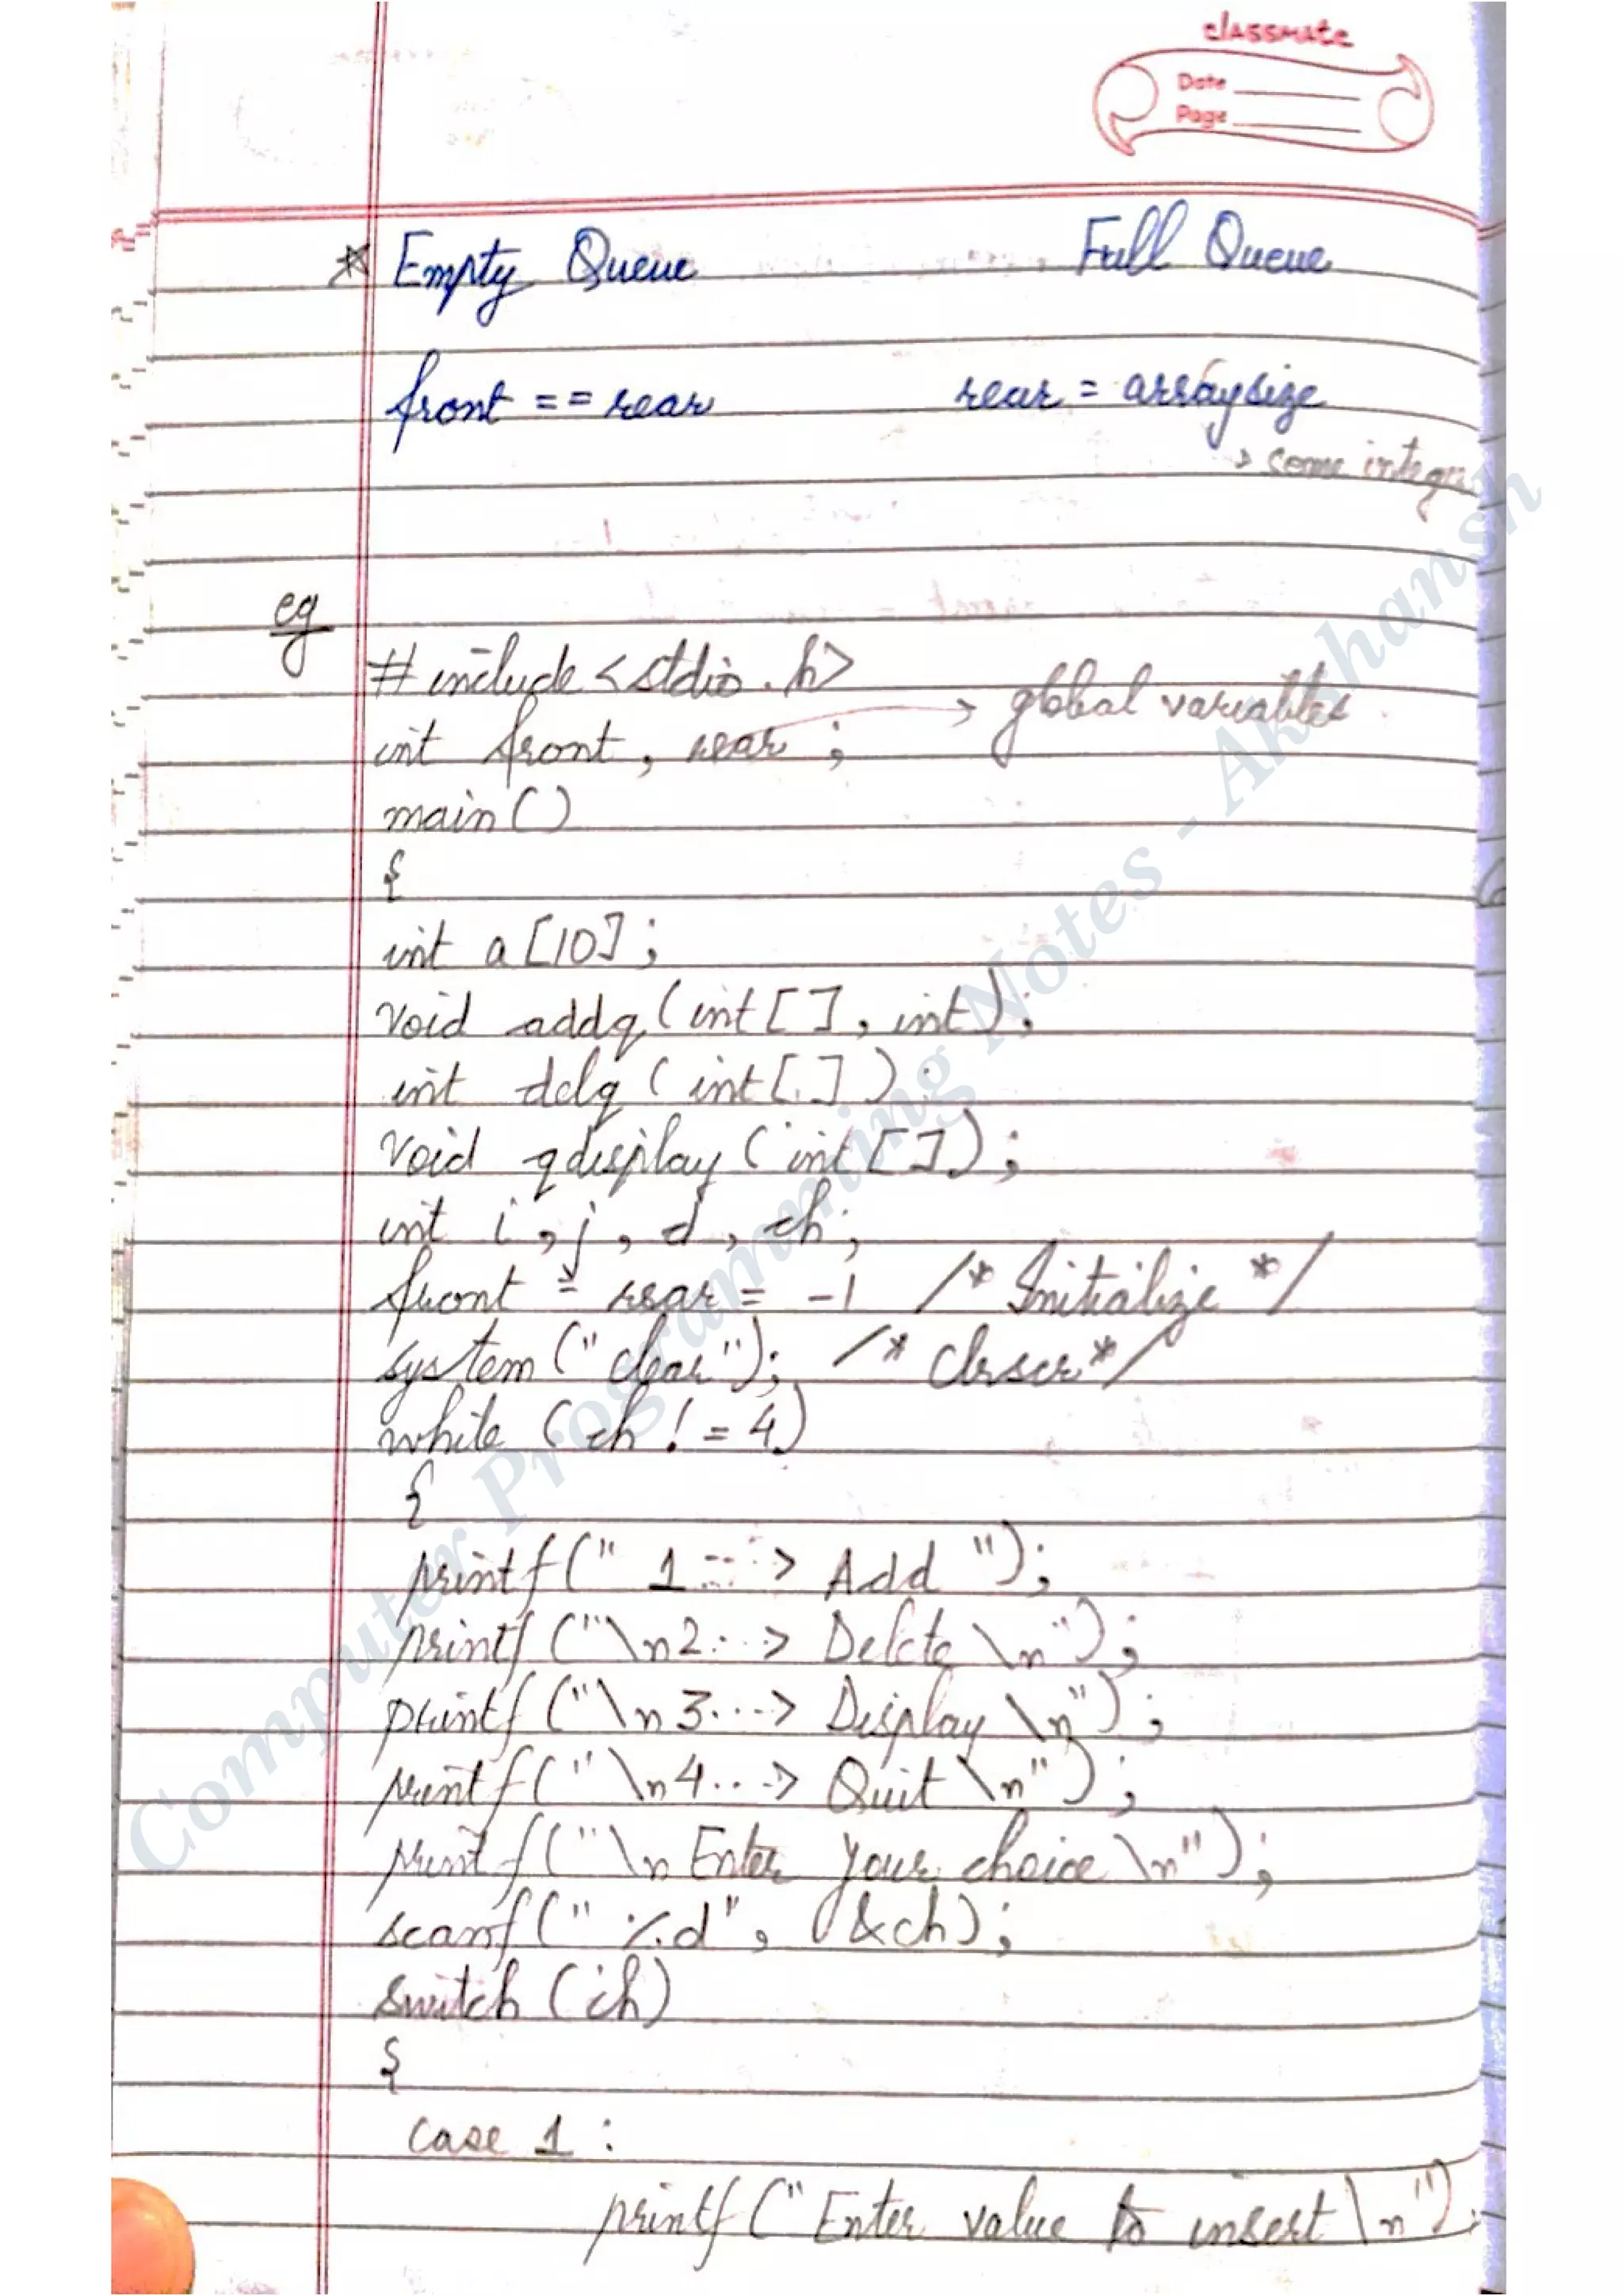 classmate
Date
Page
* Empty Queue    Full Queue
front == rear    rear = arraysize
→ some intege
eg
#include <stdio.h>
int front, rear ; → global variables
main()
{
int a[10];
void addq(int[], int);
int delq(int[]);
void qdisplay(int[]);
int i, j, d, ch;
front = rear = -1 /* Initialize */
system("clear"); /* clrscr */
while (ch != 4)
{
printf(" 1---> Add ");
printf("\n2---> Delete \n");
printf("\n3---> Display \n");
printf("\n4---> Quit \n");
printf("\n Enter your choice \n");
scanf("%d", &ch);
switch(ch)
{
case 1 :
printf("Enter value to insert \n");
Computer Programming Notes - Akhansh